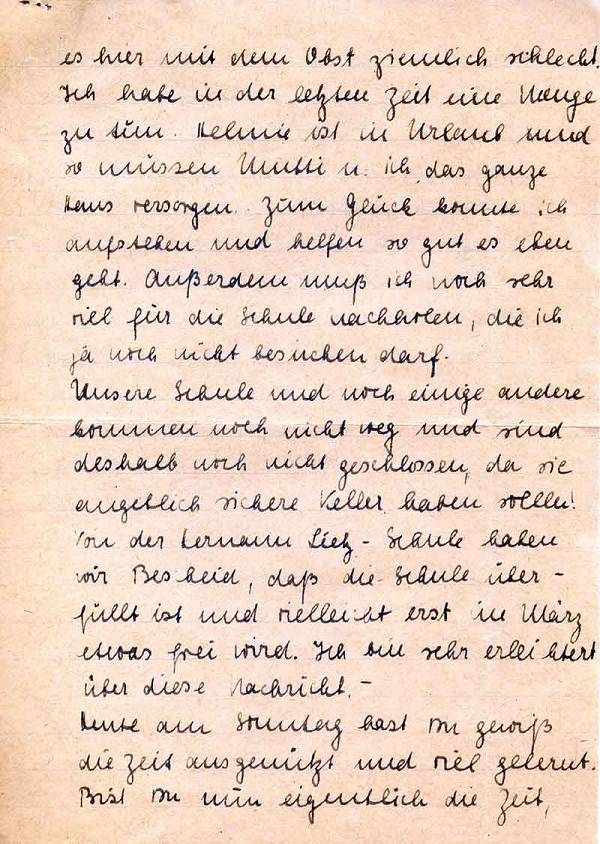 es hier mit dem Obst ziemlich schlecht.
Ich habe in der letzten Zeit eine Menge
zu tun. Helmie ist in Urlaub und
so müssen Mutti u. ich das ganze
Haus versorgen. Zum Glück konnte ich
aufstehen und helfen so gut es eben
geht. Außerdem muß ich noch sehr
viel für die Schule nachholen, die ich
ja noch nicht besuchen darf.
Unsere Schule und noch einige andere
kommen noch nicht weg und sind
deshalb noch nicht geschlossen, da sie
angeblich sichere Keller haben sollen!
Von der Hermann Lietz - Schule haben
wir Bescheid, daß die Schule über -
füllt ist und vielleicht erst im März
etwas frei wird. Ich bin sehr erleichtert
über diese Nachricht. -
Heute am Sonntag hast Du gewiß
die Zeit ausgenützt und viel gelernt.
Bist Du nun eigentlich die Zeit,